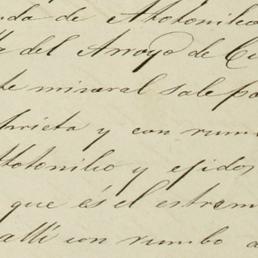 da de Atotonilco
del Arroyo de Cu
te mineral sale po
prieta y con rum
Atotonilco y ejidos
que és el estrem
alli con rumbo a